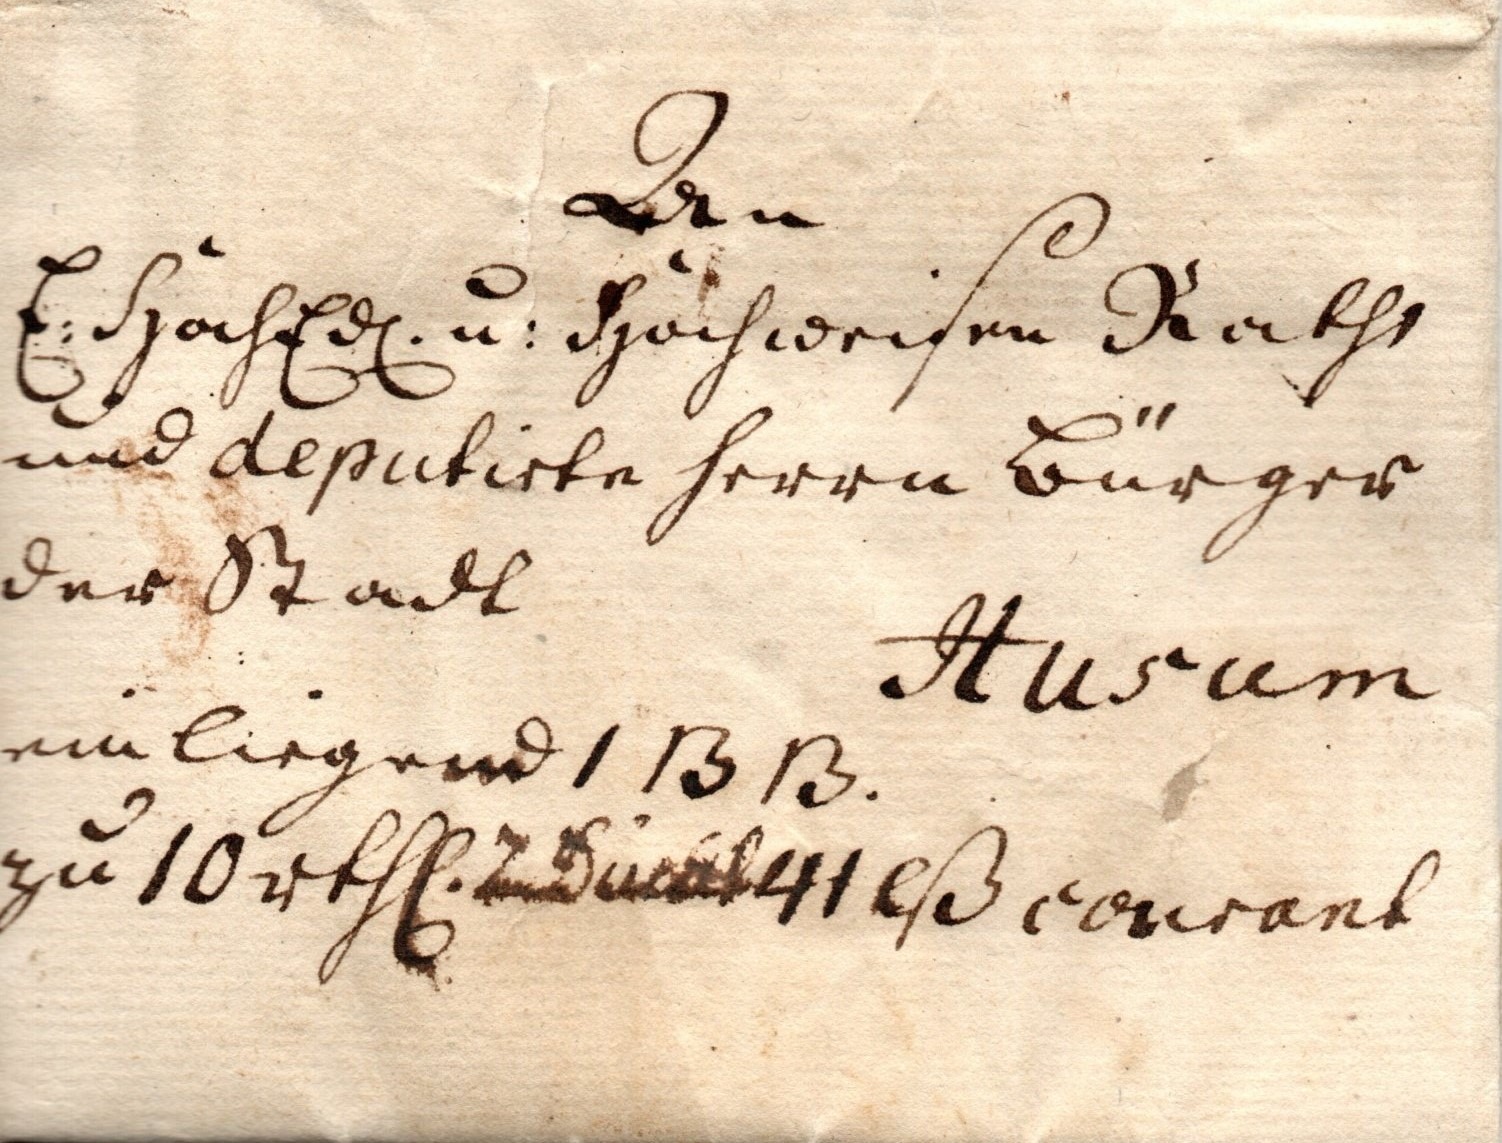 An
E: HochEdl. u: Hochweisen Raht
und deputirte herrn Bürger
der Stadt
Husum
ein liegend 1 B B.
zu 10 rthl. 41 lß courant